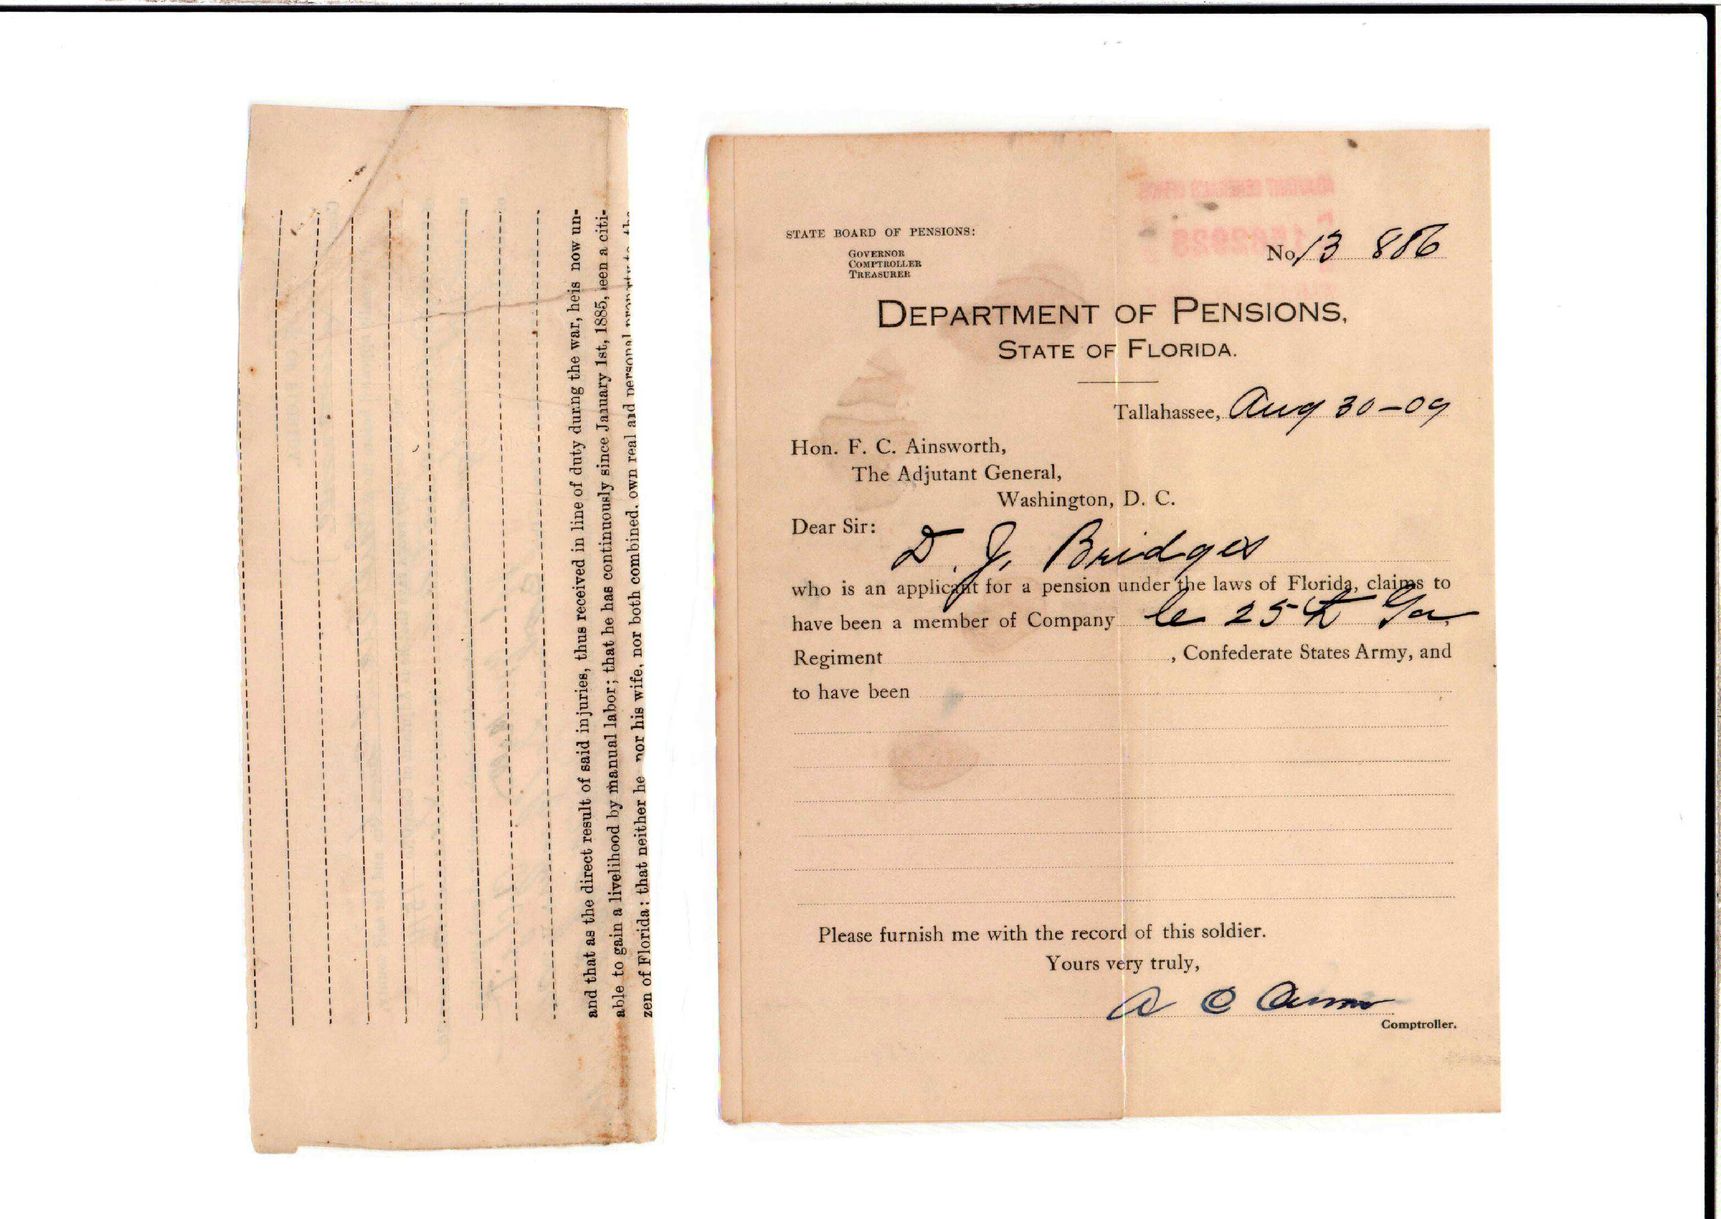 and that as the direct result of said injuries, thus received in line of duty during the war, he is now un-
able to gain a livelihood by manual labor; that he has continuously since January 1st, 1885, been a citi-
zen of Florida; that neither he nor his wife, nor both combined, own real and personal property to the
STATE BOARD OF PENSIONS:
GOVERNOR
COMPTROLLER
TREASURER
ADJUTANT GENERAL'S OFFICE
1582928
No. 13 886
DEPARTMENT OF PENSIONS,
STATE OF FLORIDA.
Tallahassee, Aug 30-09
Hon. F. C. Ainsworth,
The Adjutant General,
Washington, D. C.
Dear Sir:
D. J. Bridges
who is an applicant for a pension under the laws of Florida, claims to
have been a member of Company C 25th Ga,
Regiment , Confederate States Army, and
to have been
Please furnish me with the record of this soldier.
Yours very truly,
A C Croom
Comptroller.